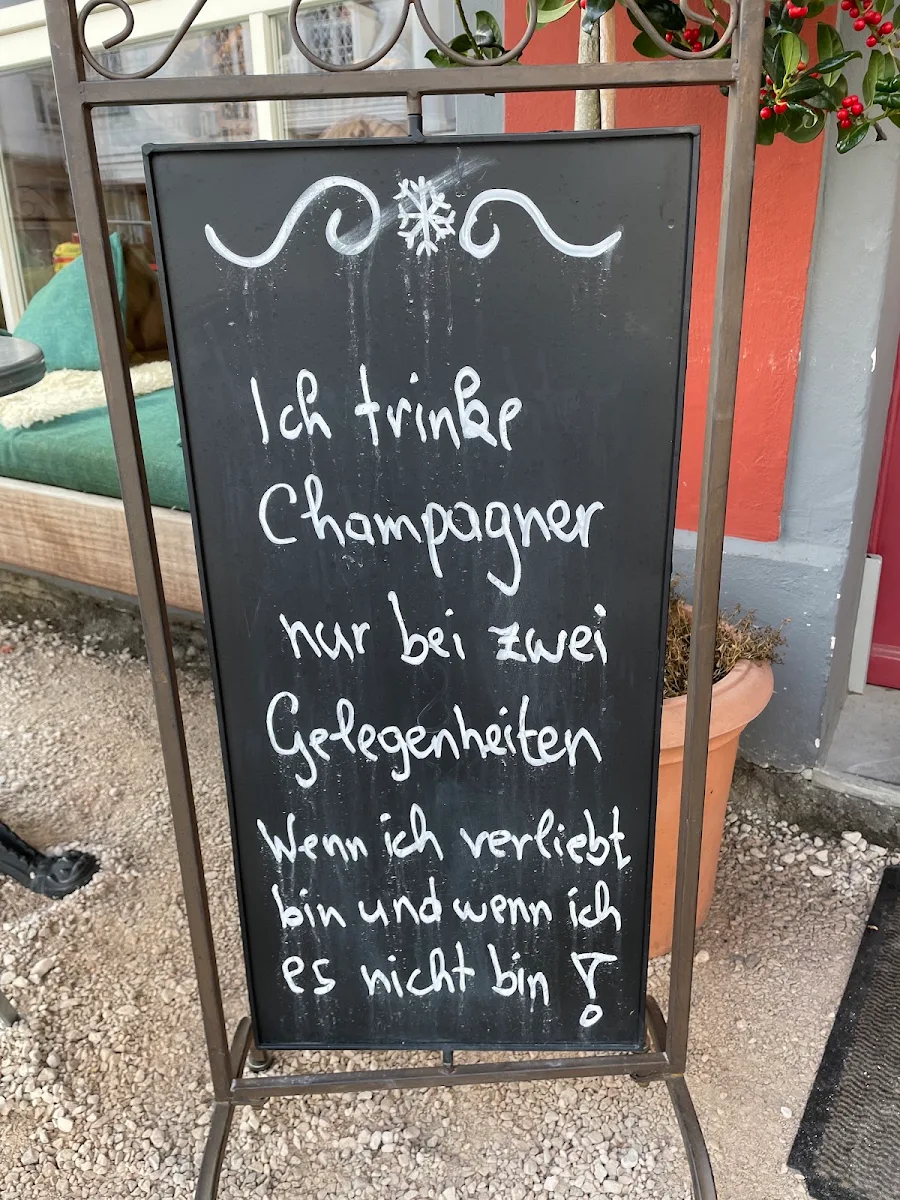 Ich trinke
Champagner
nur bei zwei
Gelegenheiten
Wenn ich verliebt
bin und wenn ich
es nicht bin !